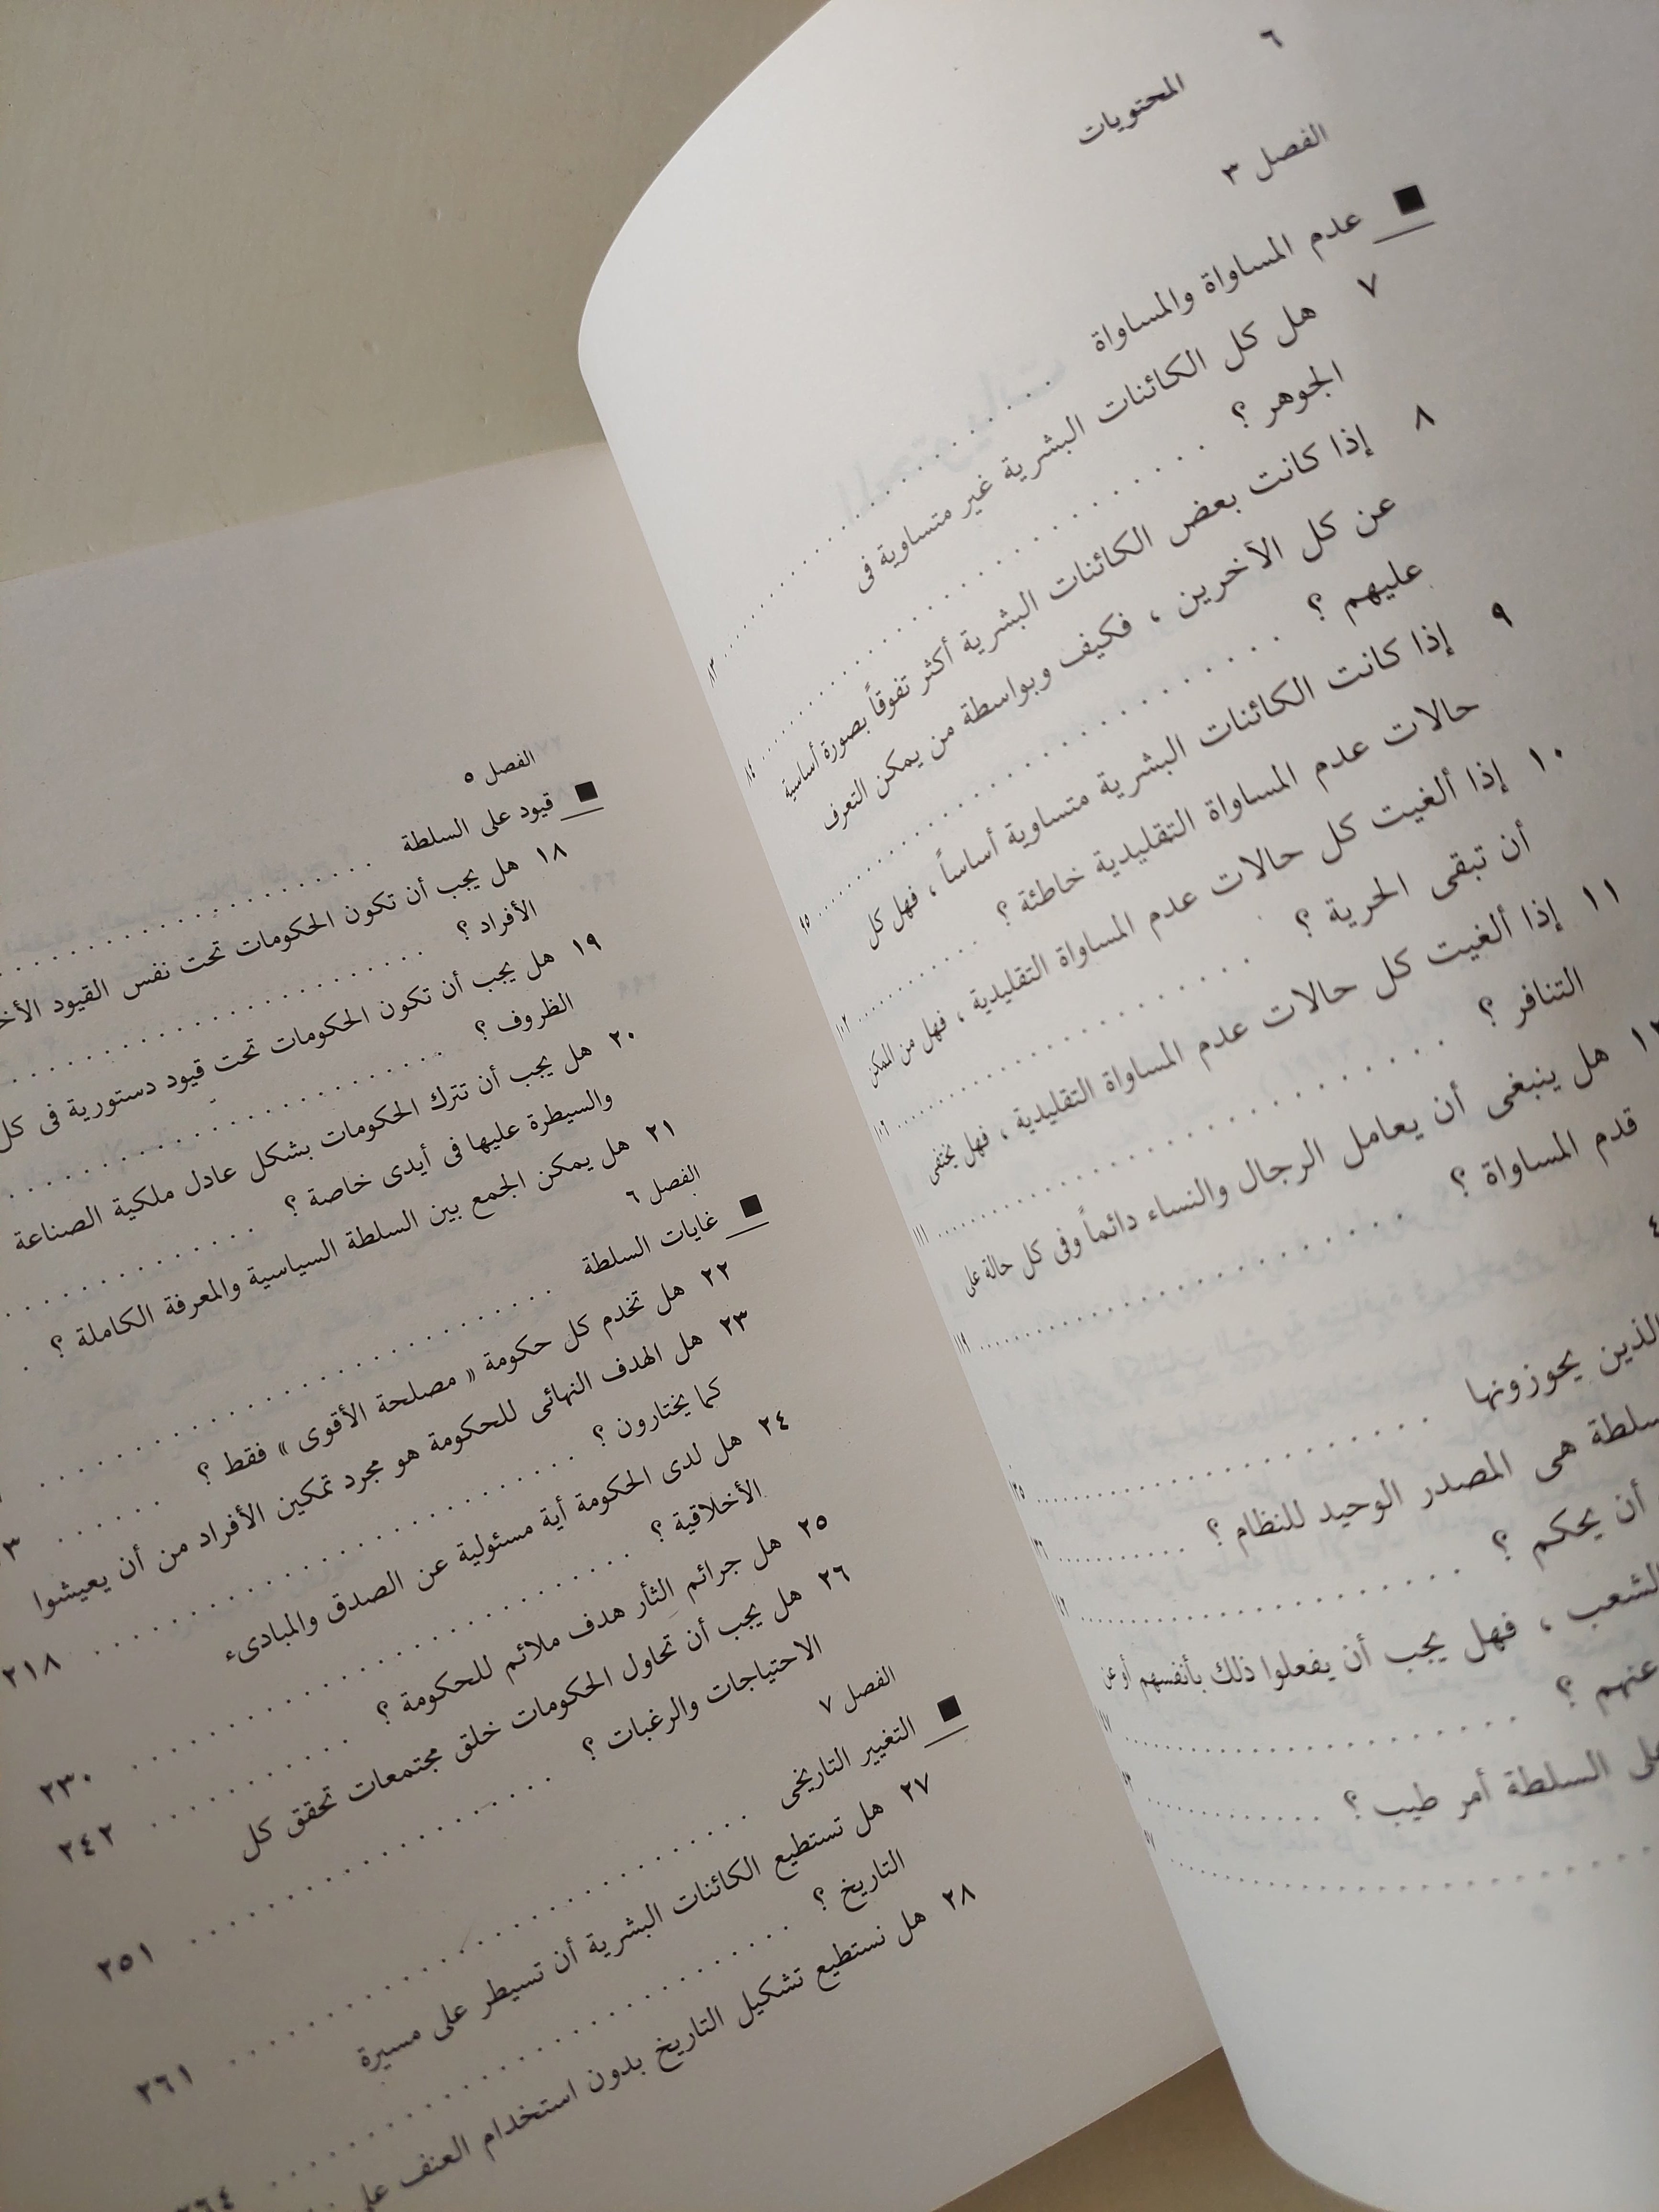 ٦
المحتويات
الفصل ٣
عدم المساواة والمساواة . . . . . . . . . . . . . . . . . . . . ٨٣
٧ هل كل الكائنات البشرية غير متساوية فى
الجوهر ؟ . . . . . . . . . . . . . . . . . . . . ٨٤
٨ إذا كانت بعض الكائنات البشرية أكثر تفوقاً بصورة أساسية
عن كل الآخرين ، فكيف وبواسطة من يمكن التعرف
عليهم ؟ . . . . . . . . . . . . . . . . . . . . ٩٥
٩ إذا كانت الكائنات البشرية متساوية أساساً ، فهل كل
حالات عدم المساواة التقليدية خاطئة ؟ . . . . . . . . . . ١٠٢
١٠ إذا ألغيت كل حالات عدم المساواة التقليدية ، فهل من الممكن
أن تبقى الحرية ؟ . . . . . . . . . . . . . . . . . . . .
١١ إذا ألغيت كل حالات عدم المساواة التقليدية ، فهل يختفى
التنافر ؟ . . . . . . . . . . . . . . . . . . . . ١١١
هل ينبغى أن يعامل الرجال والنساء دائماً وفى كل حالة على
قدم المساواة ؟ . . . . . . . . . . . . . . . . . . . . ١١٩
الذين يحوزونها . . . . . . . . . . . . . . . . . . . .
سلطة هى المصدر الوحيد للنظام ؟ . . . . . . . . . .
أن يحكم ؟ . . . . . . . . . . . . . . . . . . . .
الشعب ، فهل يجب أن يفعلوا ذلك بأنفسهم أو عن
عنهم ؟ . . . . . . . . . . . . . . . . . . . .
السلطة أمر طيب ؟ . . . . . . . . . .
الفصل ٥
قيود على السلطة . . . . . . . . . . . . . . . . . . . .
١٨ هل يجب أن تكون الحكومات تحت نفس القيود
الأفراد ؟ . . . . . . . . . . . . . . . . . . . .
١٩ هل يجب أن تكون الحكومات تحت قيود دستورية فى كل
الظروف ؟ . . . . . . . . . . . . . . . . . . . .
٢٠ هل يجب أن تترك الحكومات بشكل عادل ملكية الصناعة
والسيطرة عليها فى أيدى خاصة ؟ . . . . . . . . . .
٢١ هل يمكن الجمع بين السلطة السياسية والمعرفة الكاملة ؟ .
الفصل ٦
غايات السلطة . . . . . . . . . . . . . . . . . . . .
٢٢ هل تخدم كل حكومة « مصلحة الأقوى » فقط ؟ . . . . . .
٢٣ هل الهدف النهائى للحكومة هو مجرد تمكين الأفراد من أن يعيشوا
كما يختارون ؟ . . . . . . . . . . . . . . . . . . . . ٢١٨
٢٤ هل لدى الحكومة أية مسئولية عن الصدق والمبادىء
الأخلاقية ؟ . . . . . . . . . . . . . . . . . . . . ٢٣٠
٢٥ هل جرائم الثأر هدف ملائم للحكومة ؟ . . . . . . . . . . ٢٤٢
٢٦ هل يجب أن تحاول الحكومات خلق مجتمعات تحقق كل
الاحتياجات والرغبات ؟ . . . . . . . . . . . . . . . . . . . . ٢٥١
الفصل ٧
التغيير التاريخى . . . . . . . . . . . . . . . . . . . . ٢٦١
٢٧ هل تستطيع الكائنات البشرية أن تسيطر على مسيرة
التاريخ ؟ . . . . . . . . . . . . . . . . . . . . ٢٦٤
٢٨ هل نستطيع تشكيل التاريخ بدون استخدام العنف